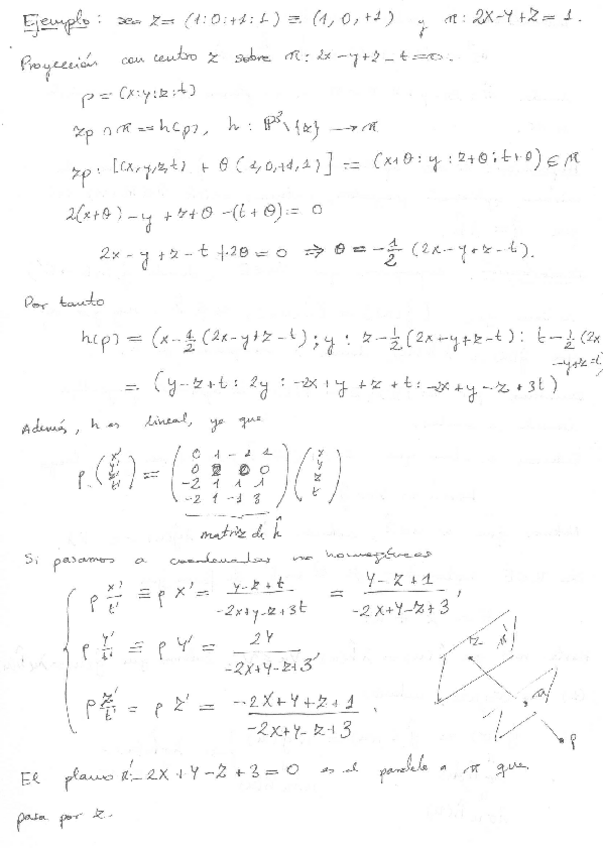 Ejemplo: sea z = (1:0:+1:1) ≡ (1, 0, +1) y π: 2X-Y+Z = 1.
Proyección con centro z sobre π: 2x-y+z-t=0.
p = (x:y:z:t)
zp ∩ π = h(p), h: P³\{z} → π
zp: [(x,y,z,t) + θ(1,0,+1,1)] = (x+θ : y : z+θ : t+θ) ∈ π
2(x+θ) - y + z+θ - (t+θ) = 0
2x - y + z - t + 2θ = 0 ⇒ θ = -1/2 (2x-y+z-t).
Por tanto
h(p) = (x-1/2(2x-y+z-t) : y : z-1/2(2x-y+z-t) : t-1/2(2x
-y+z-t)
= (y-z+t : 2y : -2x+y+z+t : -2x+y-z+3t)
Además, h es lineal, ya que
ρ (x' y' z' t') = (0 1 -1 1
0 2 0 0
-2 1 1 1
-2 1 -1 3) (x y z t)
matriz de ĥ
Si pasamos a coordenadas no homogéneas
ρ x'/t' ≡ ρ X' = (y-z+t)/(-2x+y-z+3t) = (Y-Z+1)/(-2X+Y-Z+3),
ρ y'/t' ≡ ρ Y' = 2Y/(-2X+Y-Z+3),
ρ z'/t' = ρ Z' = (-2X+Y+Z+1)/(-2X+Y-Z+3).
z π' p
El plano π': -2X+Y-Z+3=0 es el paralelo a π que
pasa por z.